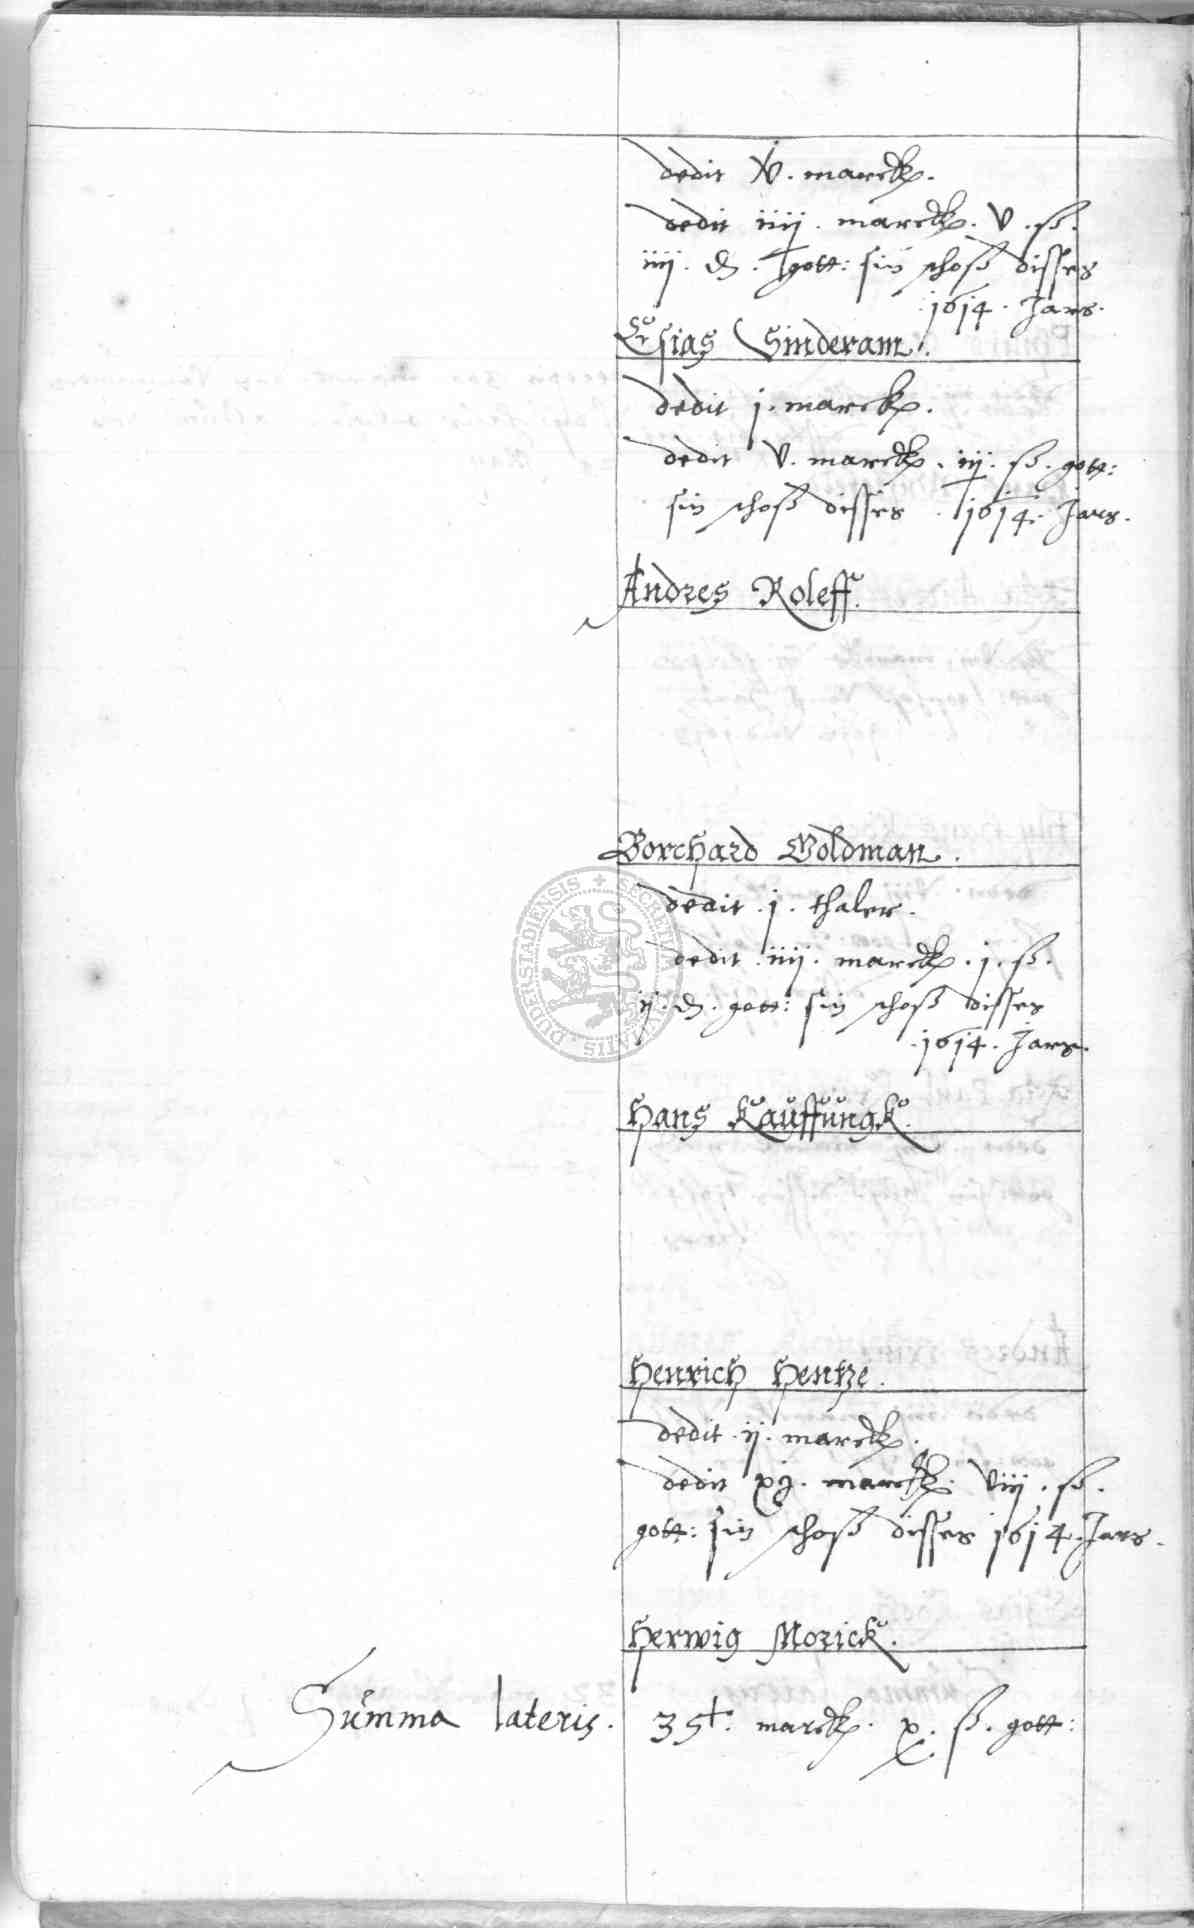 dedit v. marck.
dedit iiij. marck. v. ß.
iiij. d. gott: sin schoß disses
.1614. Jars.
Esias Sinderam.
dedit j. marck.
dedit v. marck. iij. ß. gott:
sin schoß disses .1614. Jars.
Andres Roleff.
Borchard Goldman.
dedit .j. thaler.
dedit .iiij. marck. j. ß.
ij. d. gott: sin schoß disses
.1614. Jars.
Hans Kauffungk.
Henrich Hentze.
dedit .ij. marck.
dedit xj. marck. viij. ß.
gott: sin schoß disses 1614. Jars.
Herwig Morick.
Summa lateris. 35 marck. x. ß. gott:
SECRETUM CIVITATIS DUDERSTADIENSIS